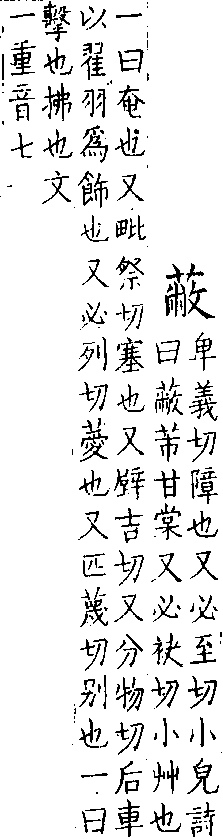 蔽
卑義切障也又必至切小皃詩
曰蔽芾甘棠又必袂切小艸也
一曰奄也又毗祭切塞也又壁吉切又分物切后車
以翟羽爲飾也又必列切薆也又匹蔑切别也一曰
擊也拂也文
一重音七